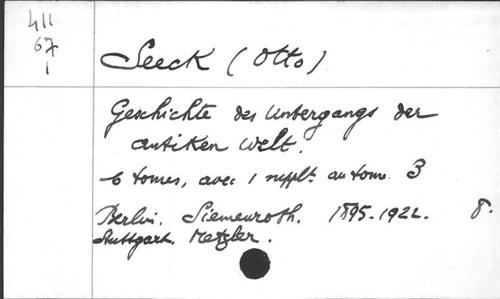 411
67
1
Seeck (Otto)
Geschichte des Untergangs der
antiken Welt.
6 tomes, avec 1 supplt. au tome 3
Berlin. Siemenroth. 1895-1922. 8.
Stuttgart. Metzler.